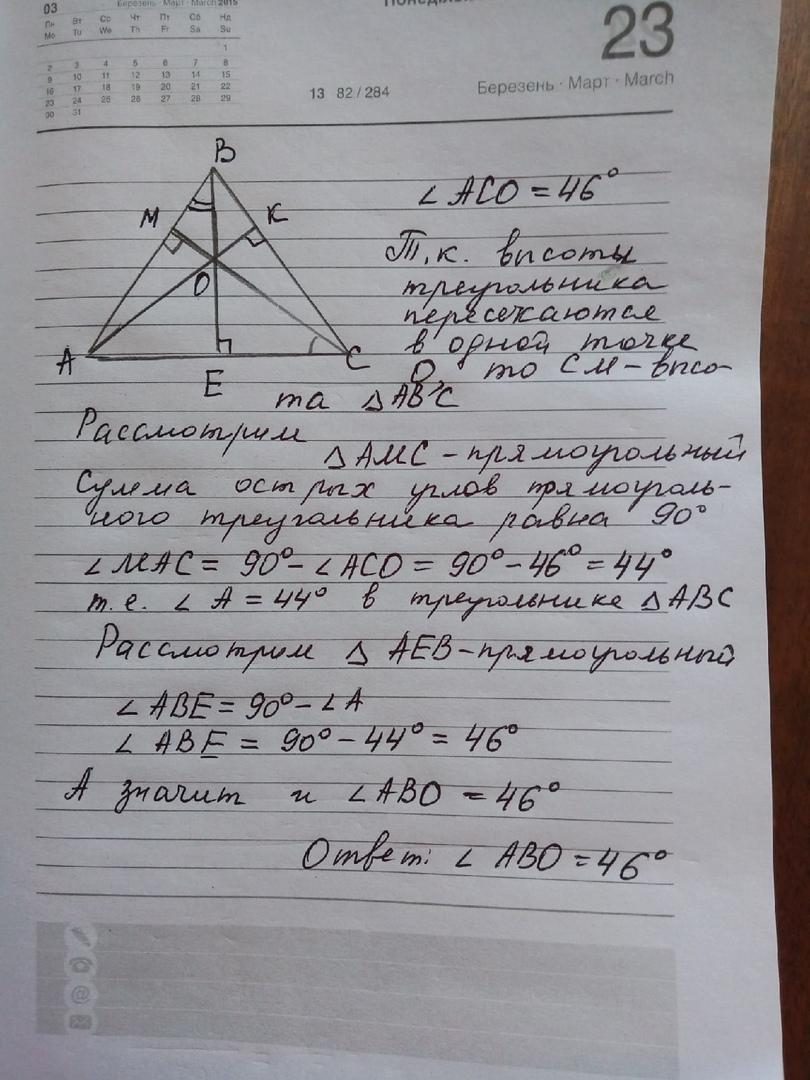 03 Березень · Март · March 2015
Пн Вт Ср Чт Пт Сб Нд
Mo Tu We Th Fr Sa Su
1
2 3 4 5 6 7 8
9 10 11 12 13 14 15
16 17 18 19 20 21 22
23 24 25 26 27 28 29
30 31
23
13 82 / 284
Березень · Март · March
B
M
K
O
A
C
E
∠ACO = 46°
Т.к. высоты
треугольника
пересекаются
в одной точке
O, то CM – высо-
та △ABC
Рассмотрим
△AMC – прямоугольный
Сумма острых углов прямоуголь-
ного треугольника равна 90°
∠MAC = 90° – ∠ACO = 90° – 46° = 44°
т.е. ∠A = 44° в треугольнике △ABC
Рассмотрим △AEB – прямоугольный
∠ABE = 90° – ∠A
∠ABE = 90° – 44° = 46°
А значит и ∠ABO = 46°
Ответ: ∠ABO = 46°